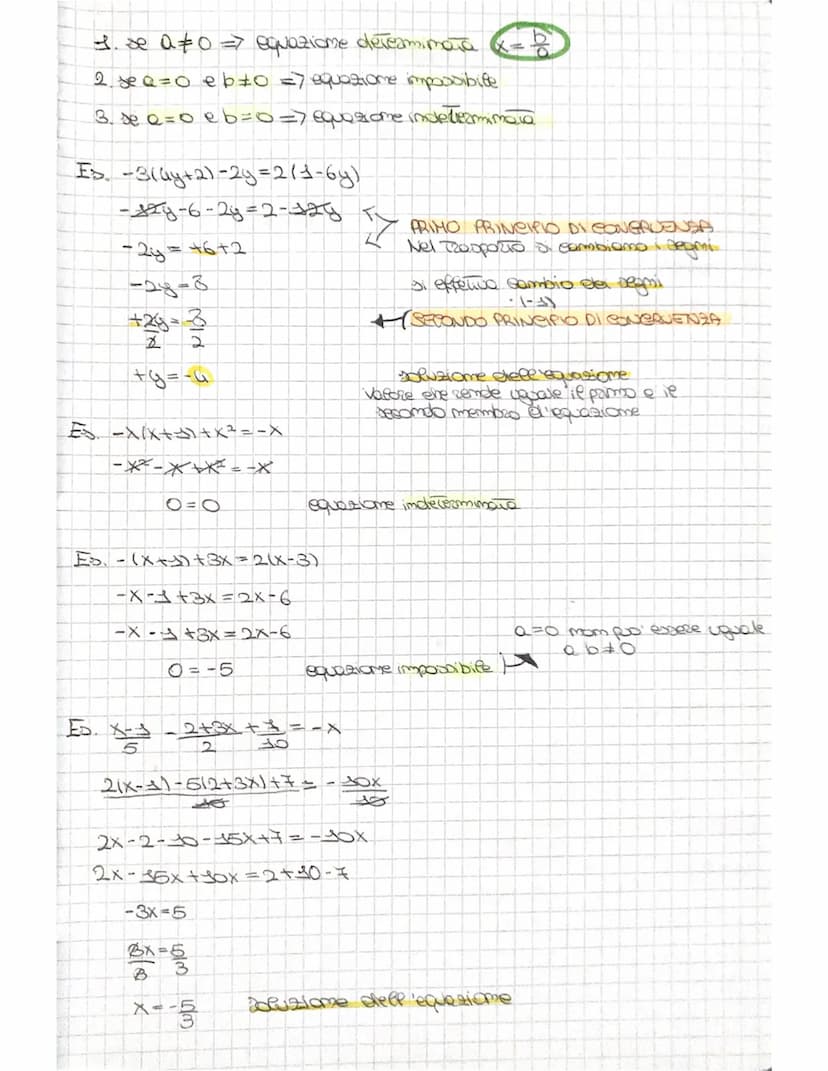 1. se a≠0 => equazione determinata x = b/a
2. se a=0 e b≠0 => equazione impossibile
3. se a=0 e b=0 => equazione indeterminata
Es. -3(4y+2)-2y=2(1-6y)
-12y-6-2y=2-12y
PRIMO PRINCIPIO DI CONGRUENZA
-2y = +6+2
Nel trasporto si cambiano i segni
-2y=8
si effettua cambio dei segni
·(-1)
+2y/2 = -8/2
SECONDO PRINCIPIO DI CONGRUENZA
+y=-4
soluzione dell'equazione
valore che rende uguale il primo e il
secondo membro d'equazione
Es. -x(x+1)+x²=-x
-x²-x+x²=-x
0=0 equazione indeterminata
Es. -(x+1)+3x=2(x-3)
-x-1+3x=2x-6
-x-1+3x=2x-6
a=0 non può essere uguale
a b≠0
0=-5 equazione impossibile
Es. x-1/5 - 2+3x/2 + 7/10 = -x
2(x-1)-5(2+3x)+7/10 = -10x/10
2x-2-10-15x+7=-10x
2x-15x+10x=2+10-7
-3x=5
3x/3=5/3
x=-5/3 soluzione dell'equazione